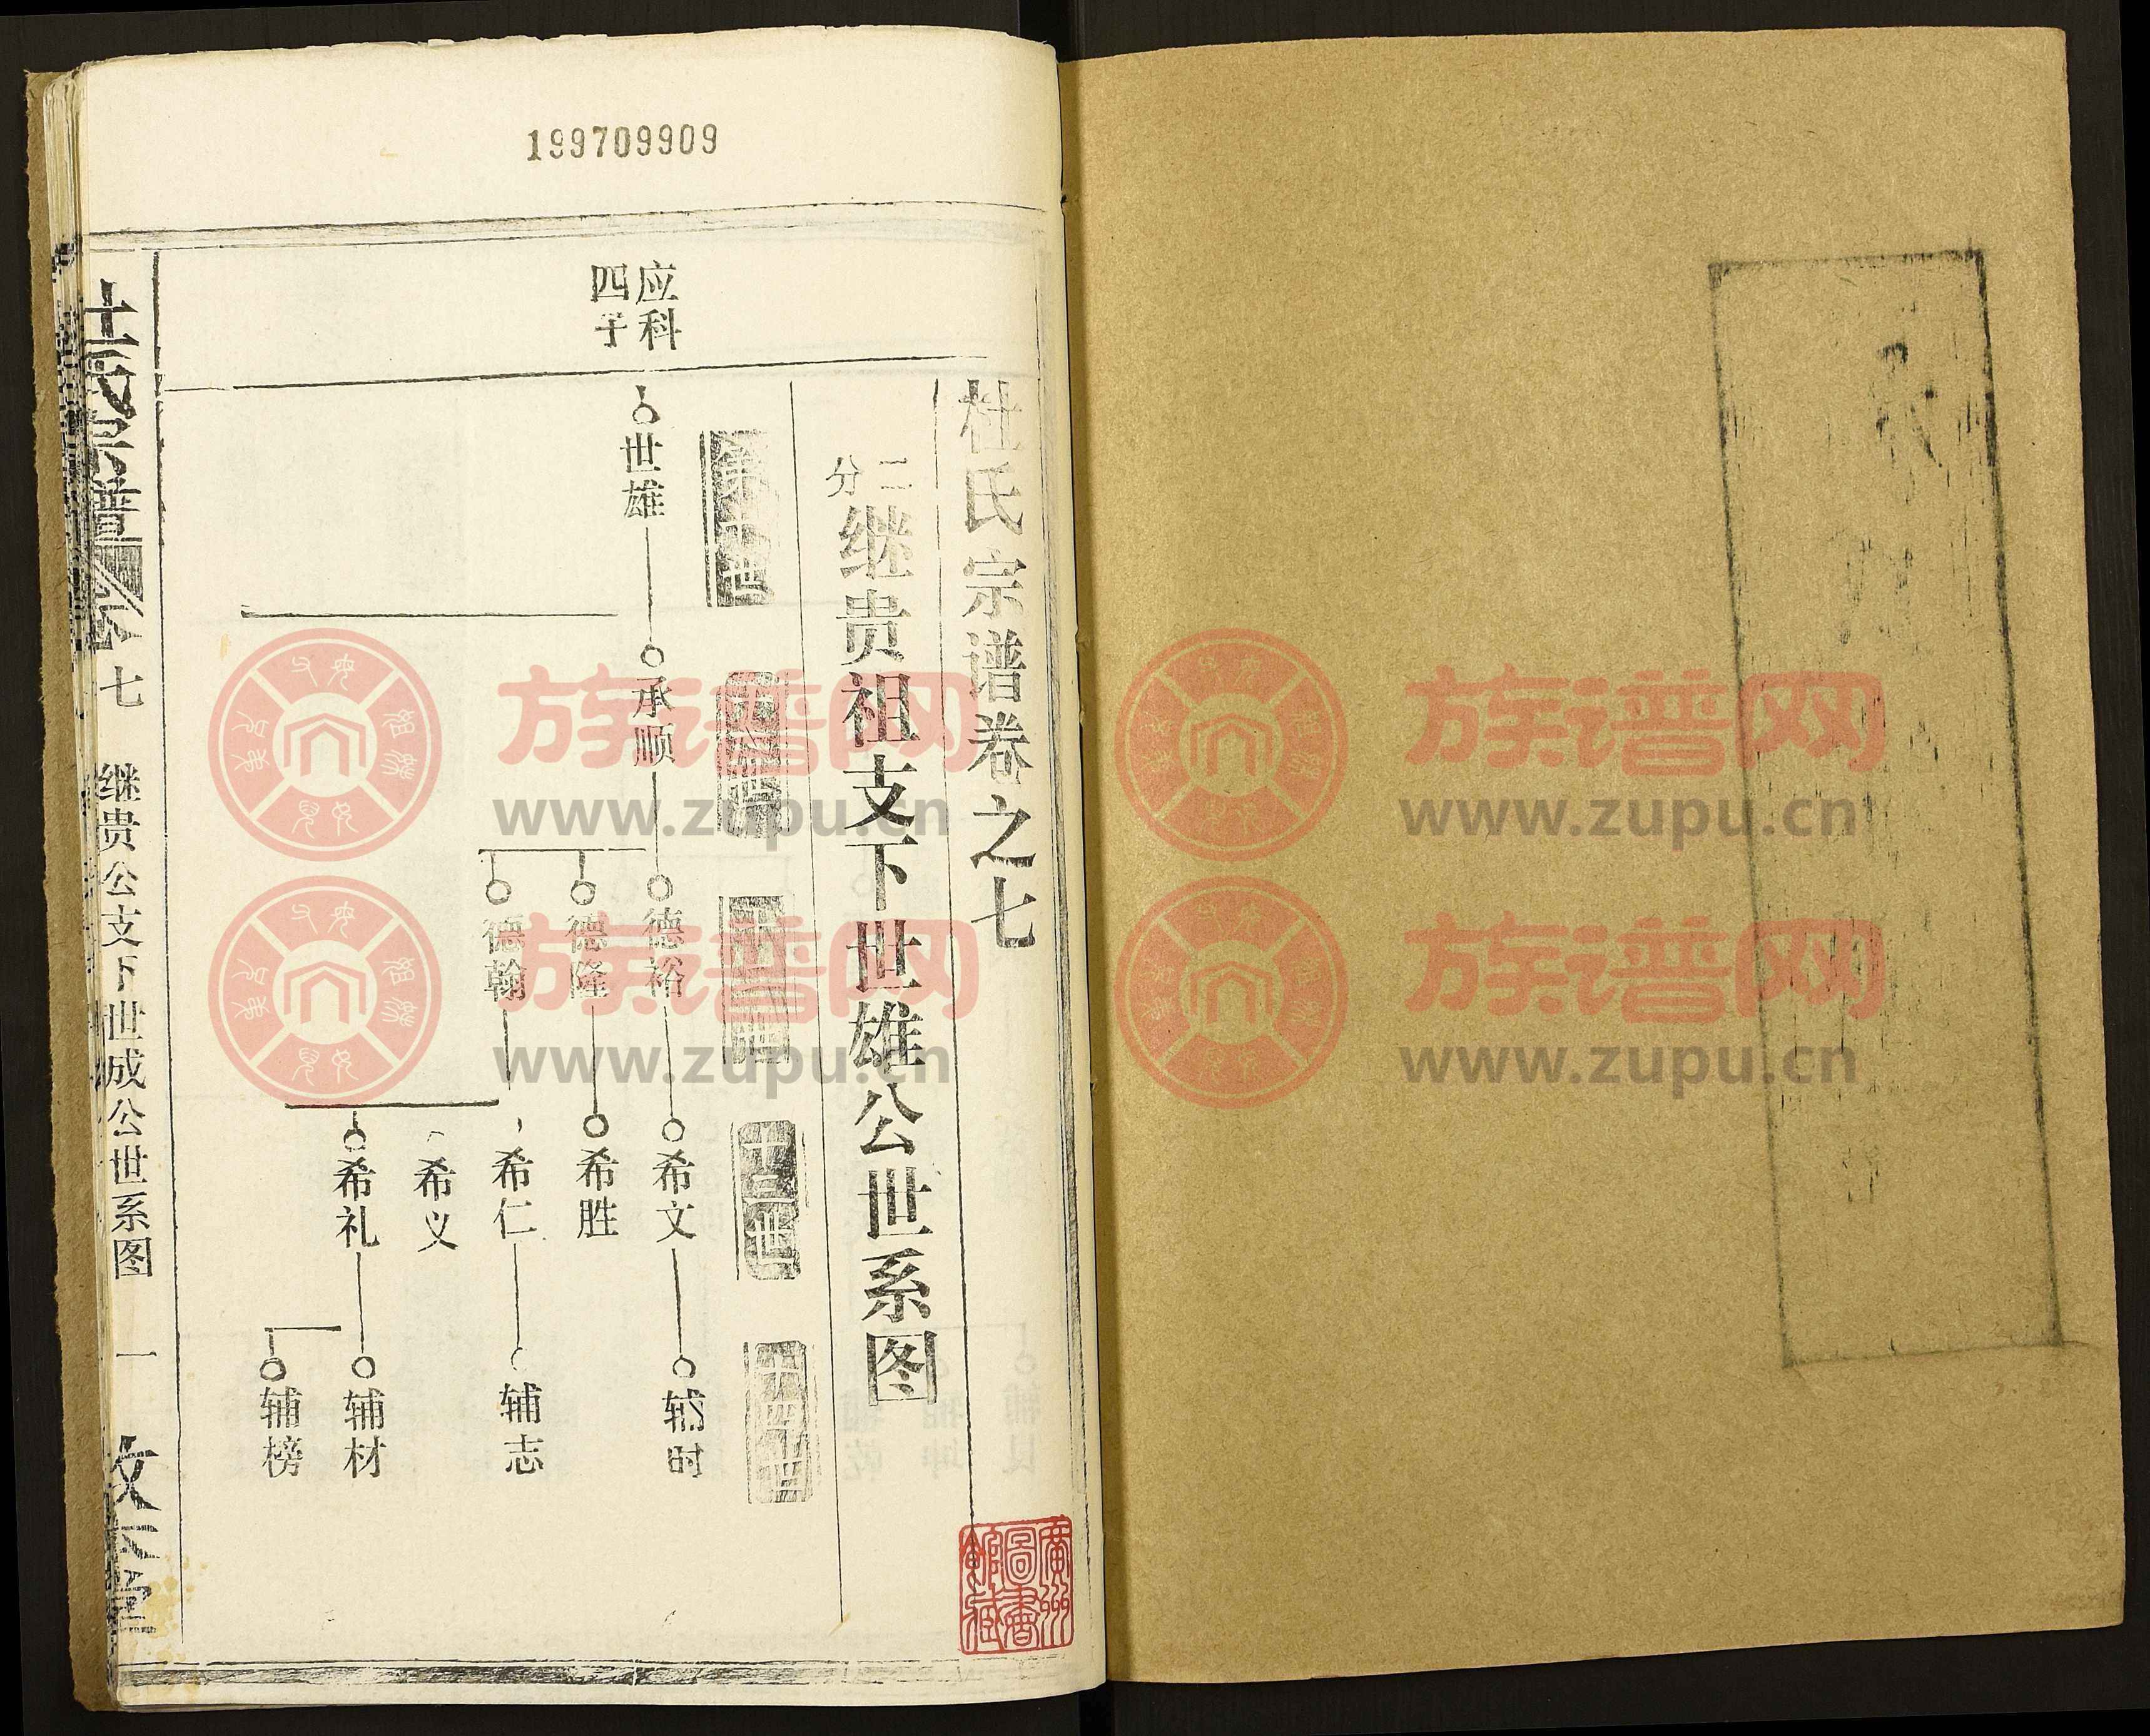 199709909
杜氏宗谱卷之七
二分继贵祖支下世雄公世系图
第十世
十一世
十二世
十三世
十四世
应科
四子
世雄
承顺
德裕
德隆
德翰
希文
希胜
希仁
希义
希礼
辅时
辅志
辅材
辅榜
杜氏宗谱
卷七
继贵公支下世成公世系图
一
廣州
圖書
館藏
族谱网
www.zupu.cn
族谱网
www.zupu.cn
族谱网
www.zupu.cn
族谱网
www.zupu.cn